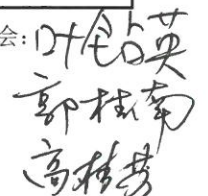 会：叶钻英
郭桂南
高桂芬